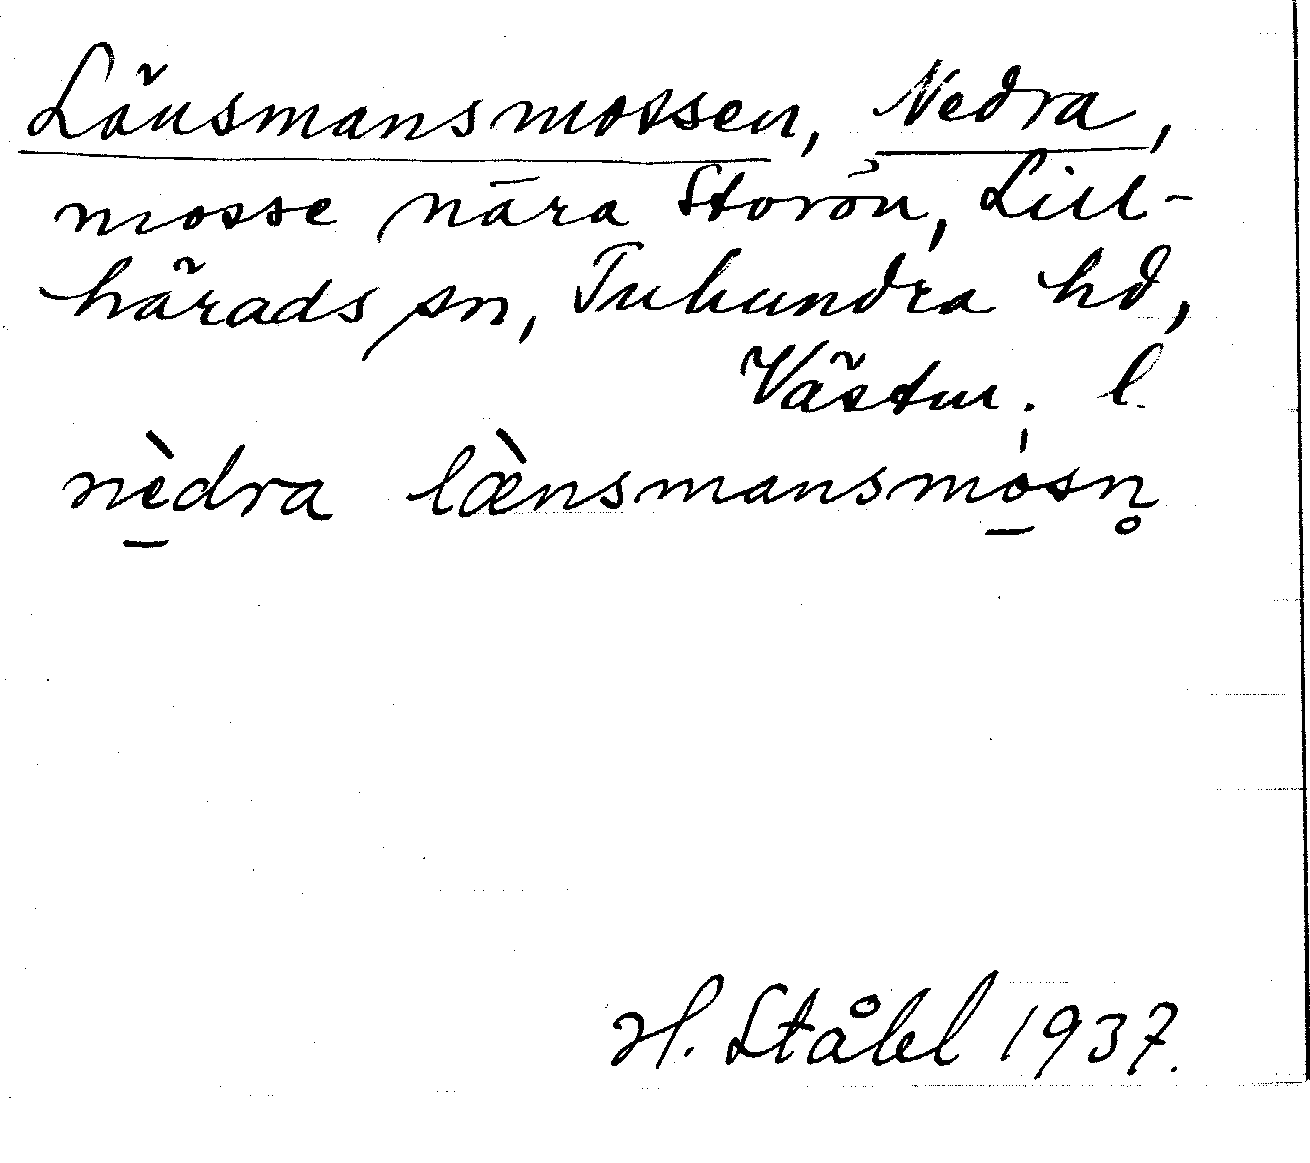 Länsmansmossen, Nedra,
mosse nära Storön, Lill-
härads sn, Tuhundra hd,
Västm. l.
nèdra lænsmansmosn̥
H. Ståhl 1937.